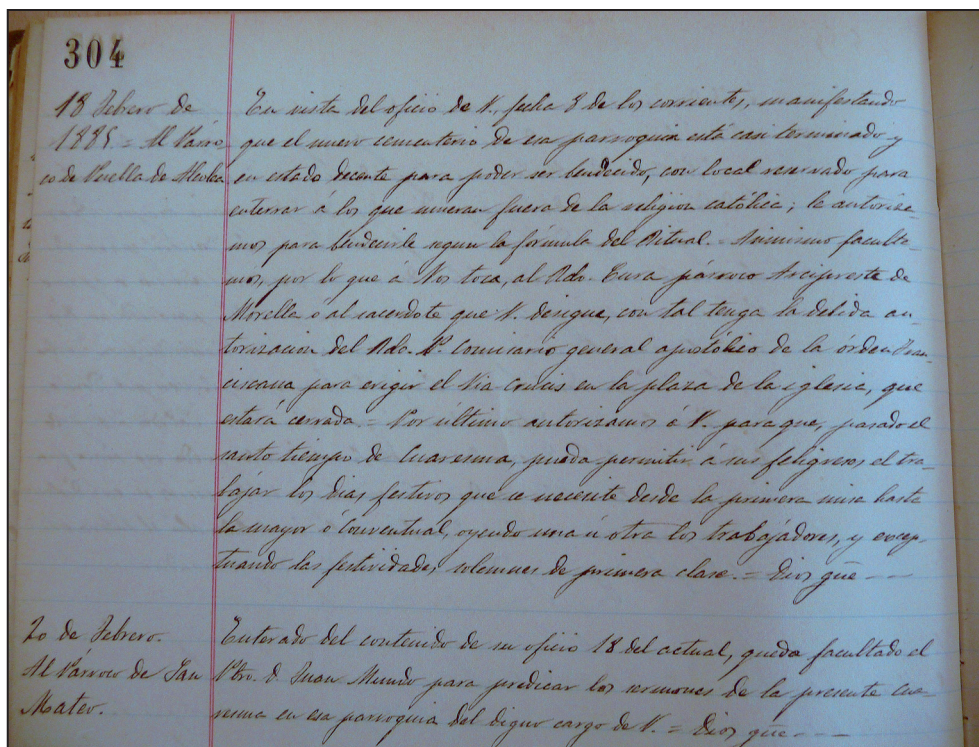 304
18 Febrero de
1885 = Al Párro-
co de Puebla de Alcolea
En vista del oficio de V., fecha 8 de los corrientes, manifestando
que el nuevo cementerio de esa parroquia está casi terminado y
en estado decente para poder ser bendecido, con local reservado para
enterrar á los que mueran fuera de la religion católica; le autoriza-
mos para bendecirle segun la fórmula del Ritual. = Asimismo faculta-
mos, por lo que á Nos toca, al Rdo. Cura párroco Arcipreste de
Morella ó al sacerdote que V. designe, con tal tenga la debida au-
torizacion del Rdo. P. Comisario general apostólico de la órden Fran-
ciscana para erigir el Via Crucis en la plaza de la iglesia, que
estará cerrada. = Por último autorizamos á V. para que, pasado el
santo tiempo de Cuaresma, pueda permitir á sus feligreses el tra-
bajar los dias festivos que se necesite desde la primera misa hasta
la mayor ó Conventual, oyendo una ú otra los trabajadores, y excep-
tuando las festividades solemnes de primera clase. = Dios gue ---
20 de Febrero.
Al Párroco de San
Mateo.
Enterado del contenido de su oficio 18 del actual, queda facultado el
Pbro. D. Juan Mundo para predicar los sermones de la presente cua-
resma en esa parroquia del digno cargo de V. = Dios gue ---